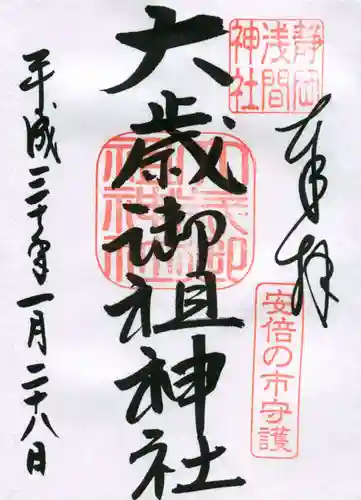 奉拝
静岡
浅間
神社
安倍の市守護
大歳御祖神社
平成三十年一月二十八日